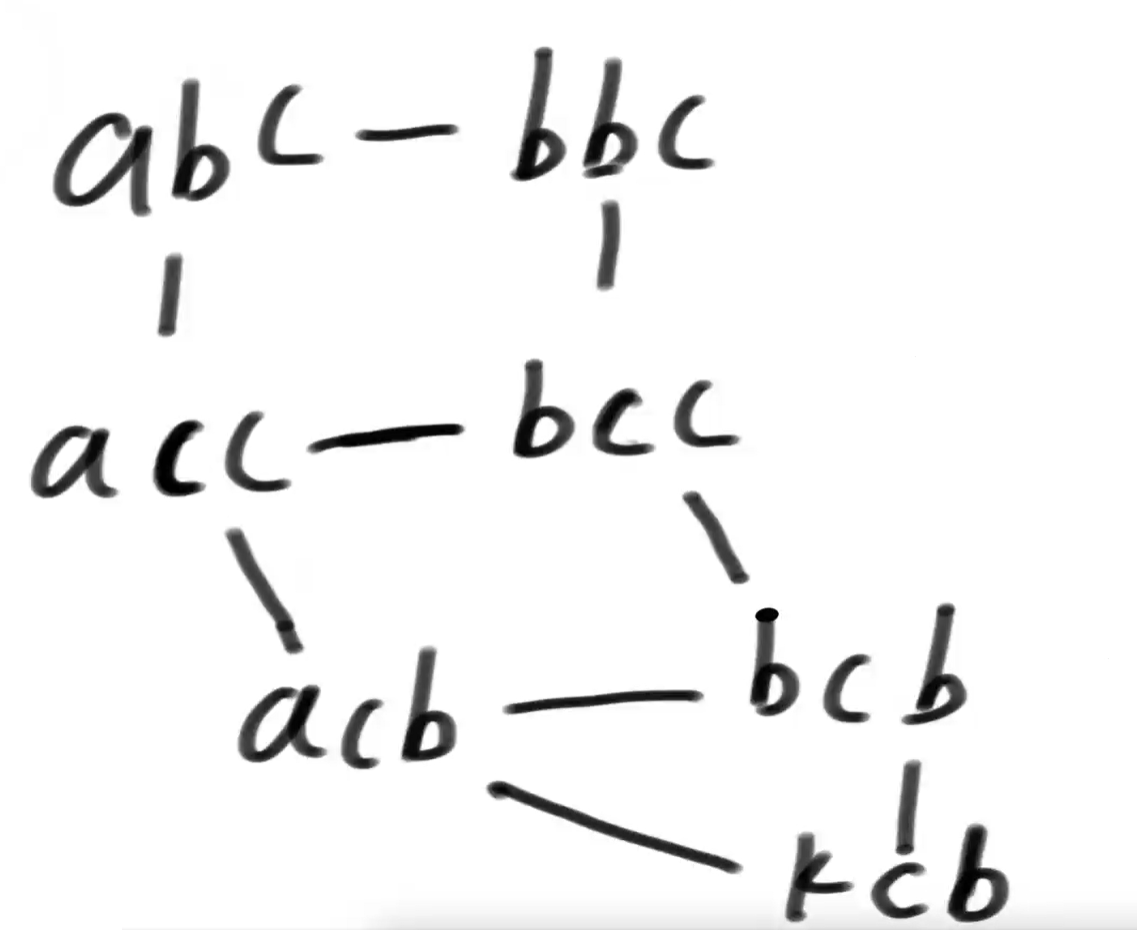 abc - bbc
acc - bcc
acb - bcb
kcb